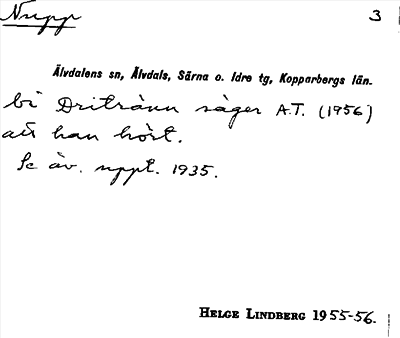 Nupp 3
Älvdalens sn, Älvdals, Särna o. Idre tg, Kopparbergs län.
bi Dritrånn säger A.T. (1956)
att han hört.
Se äv. uppt. 1935.
HELGE LINDBERG 1955-56.